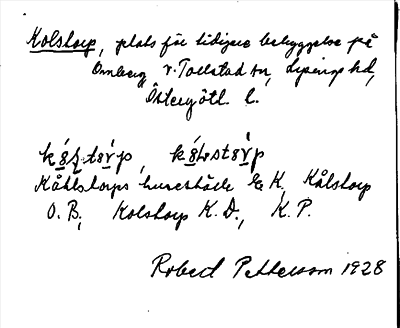 Kolstorp, plats för tidigare bebyggelse på
Omberg v. Tollstad sn, Lysings hd,
Östergötl. l.
Kåhlstorps husestäde E. K. Kålstorp
O. B., Kolstorp K. D., K. P.
Robert Pettersson 1928